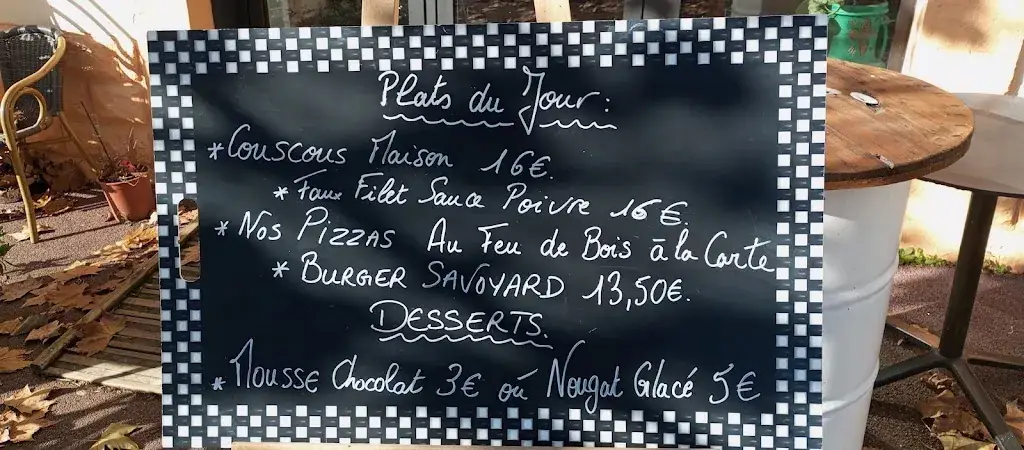 Plats du Jour:
* Couscous Maison 16€.
* Faux Filet Sauce Poivre 16€.
* Nos Pizzas Au Feu de Bois à la Carte
* BURGER SAVOYARD 13,50€.
DESSERTS.
* Mousse Chocolat 3€ où Nougat Glacé 5€